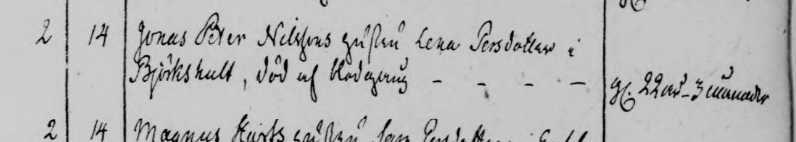 2 14 Jonas Peter Nilssons hustru Lena Persdotter i
Björkshult, död af blodgång - - - - gl. 22 år 3 månader
2 14 Magnus